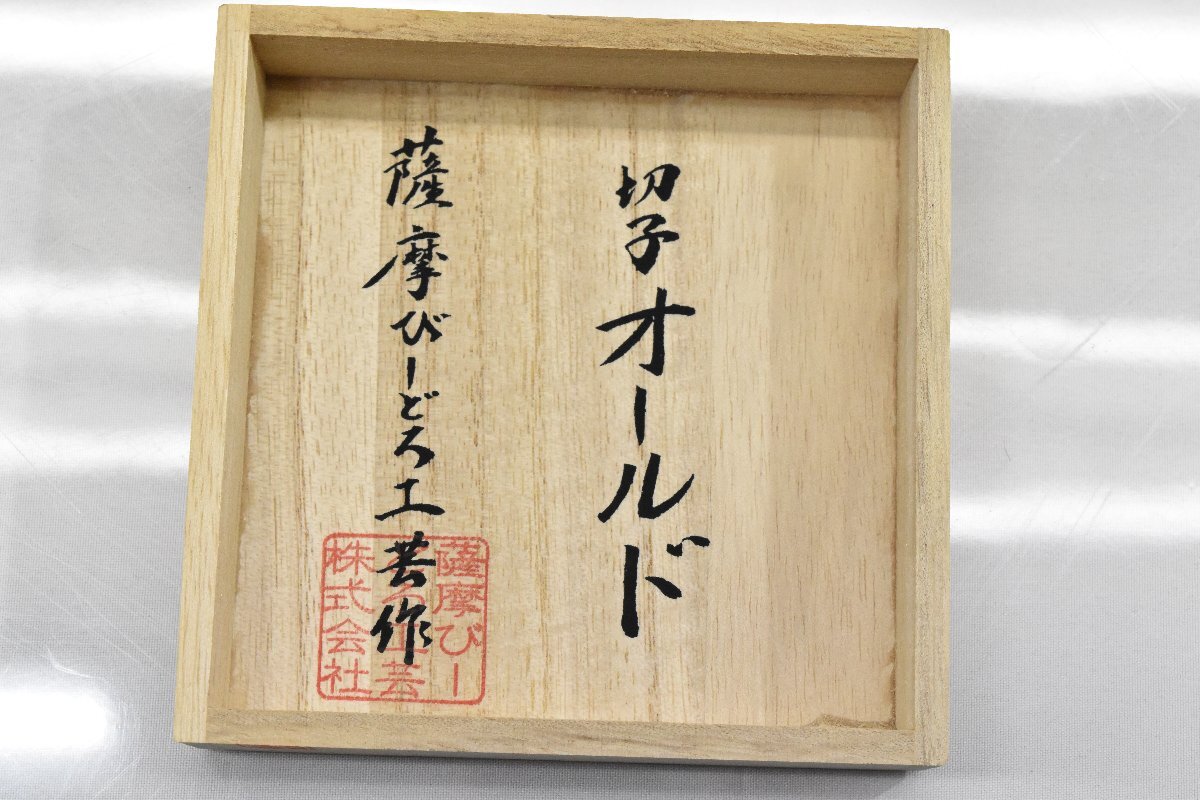 切子オールド
薩摩びーどろ工芸作
薩摩びー
どろ工芸
株式会社